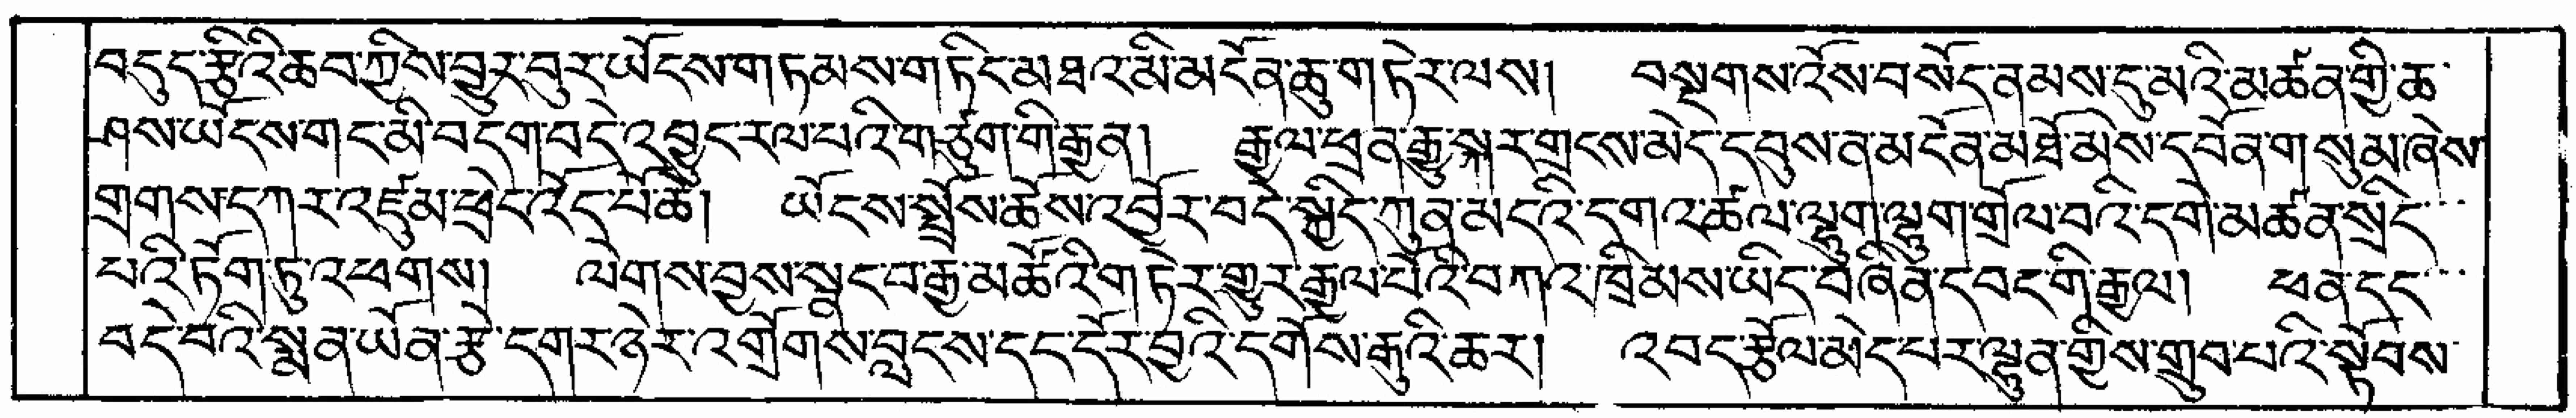 བདུད་རྩིའི་ཆབ་ཀྱིས་བྱུར་བུར་ཡོངས་གཏམས་གཏིང་མཐའ་མི་མངོན་ཆུ་གཏེར་ལས། བསྔགས་འོས་བསོད་ནམས་དུ་མའི་མཚན་གྱི་ཆ་
ཤས་ཡོངས་གང་མི་བདག་བདེ་འབྱུང་རལ་པའི་གཙུག་གི་རྒྱན། རྒྱལ་ཕྲན་རྒྱུ་སྐར་གྲངས་མེད་དབུས་ན་མངོན་མཐོ་མེས་དབོན་གསུམ་ཞེས་
གྲགས་དཀར་འཛུམ་ཕྲེང་འོད་པོ་ཆེ། ཡོངས་སྤྲོས་ཆོས་འབྱོར་བདེ་སྐྱིད་ཀུན་མངའི་དགའ་ཚལ་ལྷུག་ལྷུག་གྲོལ་བའི་དགེ་མཚན་སྲིད་
པའི་ཏོག་ཏུ་འཕགས། ལེགས་བྱས་སྣང་བ་རྒྱ་མཚོའི་གཏེར་གྱུར་རྒྱལ་པོའི་བཀའ་ཁྲིམས་ཡིད་བཞིན་དབང་གི་རྒྱལ། ཕན་དང་
བདེ་བའི་སྨན་ཡོན་རྩེ་དགར་ཉེར་འགྲོགས་བླངས་དང་དོར་བྱའི་དགོས་རྒུའི་ཆར། འབད་རྩོལ་མེད་པར་ལྷུན་གྱིས་གྲུབ་པའི་སྟོབས་